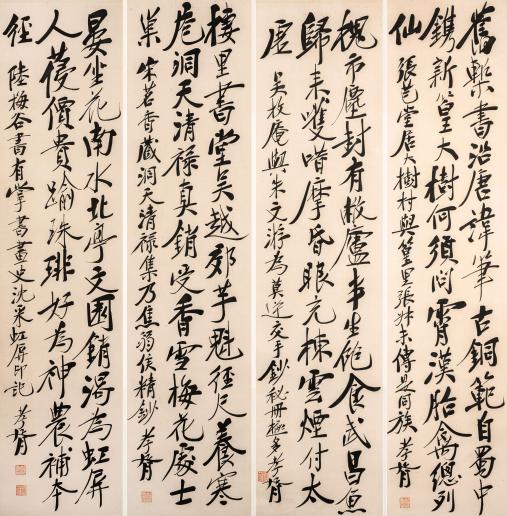 舊槧書沿唐諱筆古銅範自蜀中
鐫新篁大樹何須問霄漢胎禽總列
仙 張芑堂居大樹村與篁里張叔未傳是同族 孝胥
槐市塵封有敝廬半生飽食武昌魚
歸來嚄唶摩昏眼充棟雲煙付太
虛 吳枚庵與朱文游為莫逆交手鈔秘冊極多孝胥
樓里書堂吳越郊芋魁徑尺養寒
庖洞天清祿真銷受香雪梅花處士
巢 朱若香藏洞天清祿集乃焦弱侯精鈔 孝胥
晏坐花南水北亭文園銷渴為虹屏
人葠價貴踰珠琲好為神農補本
經 陸梅谷書有掌書畫史沈采虹屏印記 孝胥